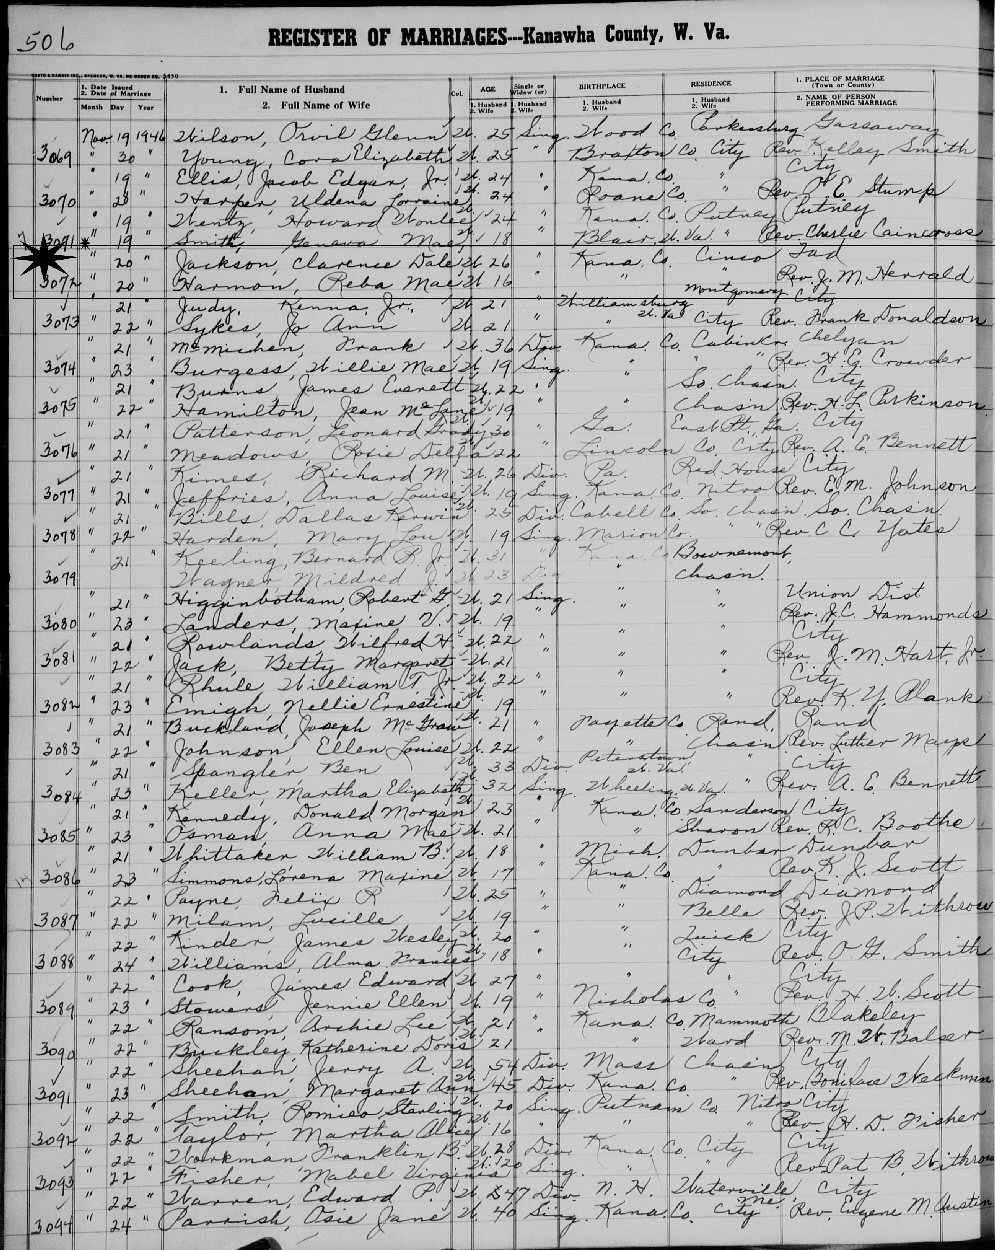 506
REGISTER OF MARRIAGES---Kanawha County, W. Va.
Number
1. Date Issued
2. Date of Marriage
Month Day Year
1. Full Name of Husband
2. Full Name of Wife
Col.
AGE
1. Husband
2. Wife
Single or
Widow (er)
1. Husband
2. Wife
BIRTHPLACE
1. Husband
2. Wife
RESIDENCE
1. Husband
2. Wife
1. PLACE OF MARRIAGE
(Town or County)
2. NAME OF PERSON
PERFORMING MARRIAGE
Nov. 19 1946 Wilson, Orvil Glenn W. 25 Sing. Wood Co. Parkersburg Gassaway
3069 " 20 " Young, Cora Elizabeth W. 25 " Braxton Co. City Rev. Kelley Smith
" 19 " Ellis, Jacob Edgar, Jr. W. 24 " Kana. Co. " City
3070 " 20 " Harper, Uldena Lorraine W. 24 " Roane Co. " Rev. F. E. Stump
" 19 " Wentz, Howard Wonlee W. 24 " Kana. Co. Putney Putney
3071 " 19 " Smith, Geneva Mae W. 18 " Blair, W. Va. " Rev. Charlie Caincross
" 20 " Jackson, Clarence Dale W. 26 " Kana. Co. Cinco Tad
3072 " 20 " Harmon, Reba Mae W. 16 " " " Rev. J. M. Herrald
" 21 " Judy, Kenna, Jr. W. 21 " Williamsburg W. Va. Montgomery City
3073 " 22 " Sykes, Jo Ann W. 21 " " City Rev. Frank Donaldson
" 21 " McMichen, Frank W. 36 Div. Kana. Co. Cabin Cr. Chelyan
3074 " 23 Burgess, Willie Mae W. 19 Sing. " " " Rev. H. E. Crowder
" 21 " Burns, James Everett W. 22 " " So. Chasn. City
3075 " 22 " Hamilton, Jean McLane W. 19 " " Chasn Rev. H. L. Parkinson
" 21 " Patterson, Leonard Grady W. 30 " Ga. East Pt., Ga. City
3076 " 21 " Meadows, Rosie Della W. 22 Lincoln Co. City Rev. A. E. Bennett
" 21 " Kimes, Richard M. W. 26 Div. Pa. Red House City
3077 " 21 " Jeffries, Anna Louise W. 19 Sing. Kana. Co. Nitro Rev. E. M. Johnson
" 21 " Bills, Dallas Kerwin W. 25 Div. Cabell Co. So. Chasn So. Chasn.
3078 " 22 " Harden, Mary Lou W. 19 Sing. Marion Co. " " Rev. C. C. Yates
" 21 Keeling, Bernard P. Jr. W. 31 " Kana. Co. Bournemont,
3079 Wagner Mildred J. W. 23 Div " Chasn.
" 21 " Higginbotham, Robert G. W. 21 Sing. " " Union Dist
3080 " 23 " Landers, Maxine V. W. 19 " " " Rev. J. C. Hammonds
" 21 " Rowlands, Wilfred H. W. 22 " " " City
3081 " 22 " Jack, Betty Margaret W. 21 " " " Rev. J. M. Hart, Jr.
" 21 " Rhule William T. Jr. W. 22 " " " City
3082 " 23 " Emigh Nellie Ernestine W. 19 " " " Rev. K. Y. Plank
" 21 " Buckland, Joseph McGraw W. 21 " Fayette Co. Rand, Rand
3083 " 22 " Johnson, Ellen Louise W. 22 " " Chasn Rev. Luther Mays
" 21 " Spangler Ben W. 33 Div. Peterstown W. Va. " City
3084 " 23 " Keller, Martha Elizabeth W. 32 Sing. Wheeling, W. Va. " Rev. A. E. Bennett
" 21 " Kennedy, Donald Morgan W. 23 " Kana. Co. Sanderson City
3085 " 23 " Osman, Anna Mae W. 21 " " Sharon Rev. R. C. Boothe
" 21 " Whittaker William B. W. 18 " Mich. Dunbar Dunbar
3086 " 23 " Simmons, Lorena Maxine W. 17 " Kana. Co. " Rev. K. J. Scott
" 22 " Payne, Felix R W. 25 " " Diamond Diamond
3087 " 22 " Milam, Lucille W. 19 " " Belle Rev. J. P. Withrow
" 22 " Kinder, James Wesley W. 20 " " Quick City
3088 " 24 " Williams, Alma Frances W. 18 " " City Rev. O. G. Smith
" 22 " Cook, James Edward W. 27 " " " City
3089 " 23 " Stowers, Jennie Ellen W. 19 " Nicholas Co " Rev. H. W. Scott
" 22 " Ransom, Archie Lee W. 21 " Kana. Co. Mammoth Blakeley
3090 " 22 " Buckley, Katherine Doris W. 21 " " Ward Rev. M. W. Balser
" 22 " Sheehan, Jerry A. W. 54 Div. Mass Chasn City
3091 " 23 " Sheehan, Margaret Ann W. 45 Div. Kana. Co " Rev. Boniface Weckman
" 22 " Smith, Romieo Sterling W. 20 Sing. Putnam Co. Nitro City
3092 " 22 " Taylor, Martha Alice W. 16 " " " Rev. H. D. Fisher
" 22 " Workman Franklin B. W. 28 Div. Kana. Co. City City
3093 " 22 " Fisher, Mabel Virginia W. 20 Sing. " " Rev. Pat B. Withrow
" 22 " Warren, Edward P. W. 47 Div. N. H. Waterville, Me. City
3094 " 24 " Parrish, Osie Jane W. 40 Sing. Kana. Co. City Rev. Eugene M. Austin